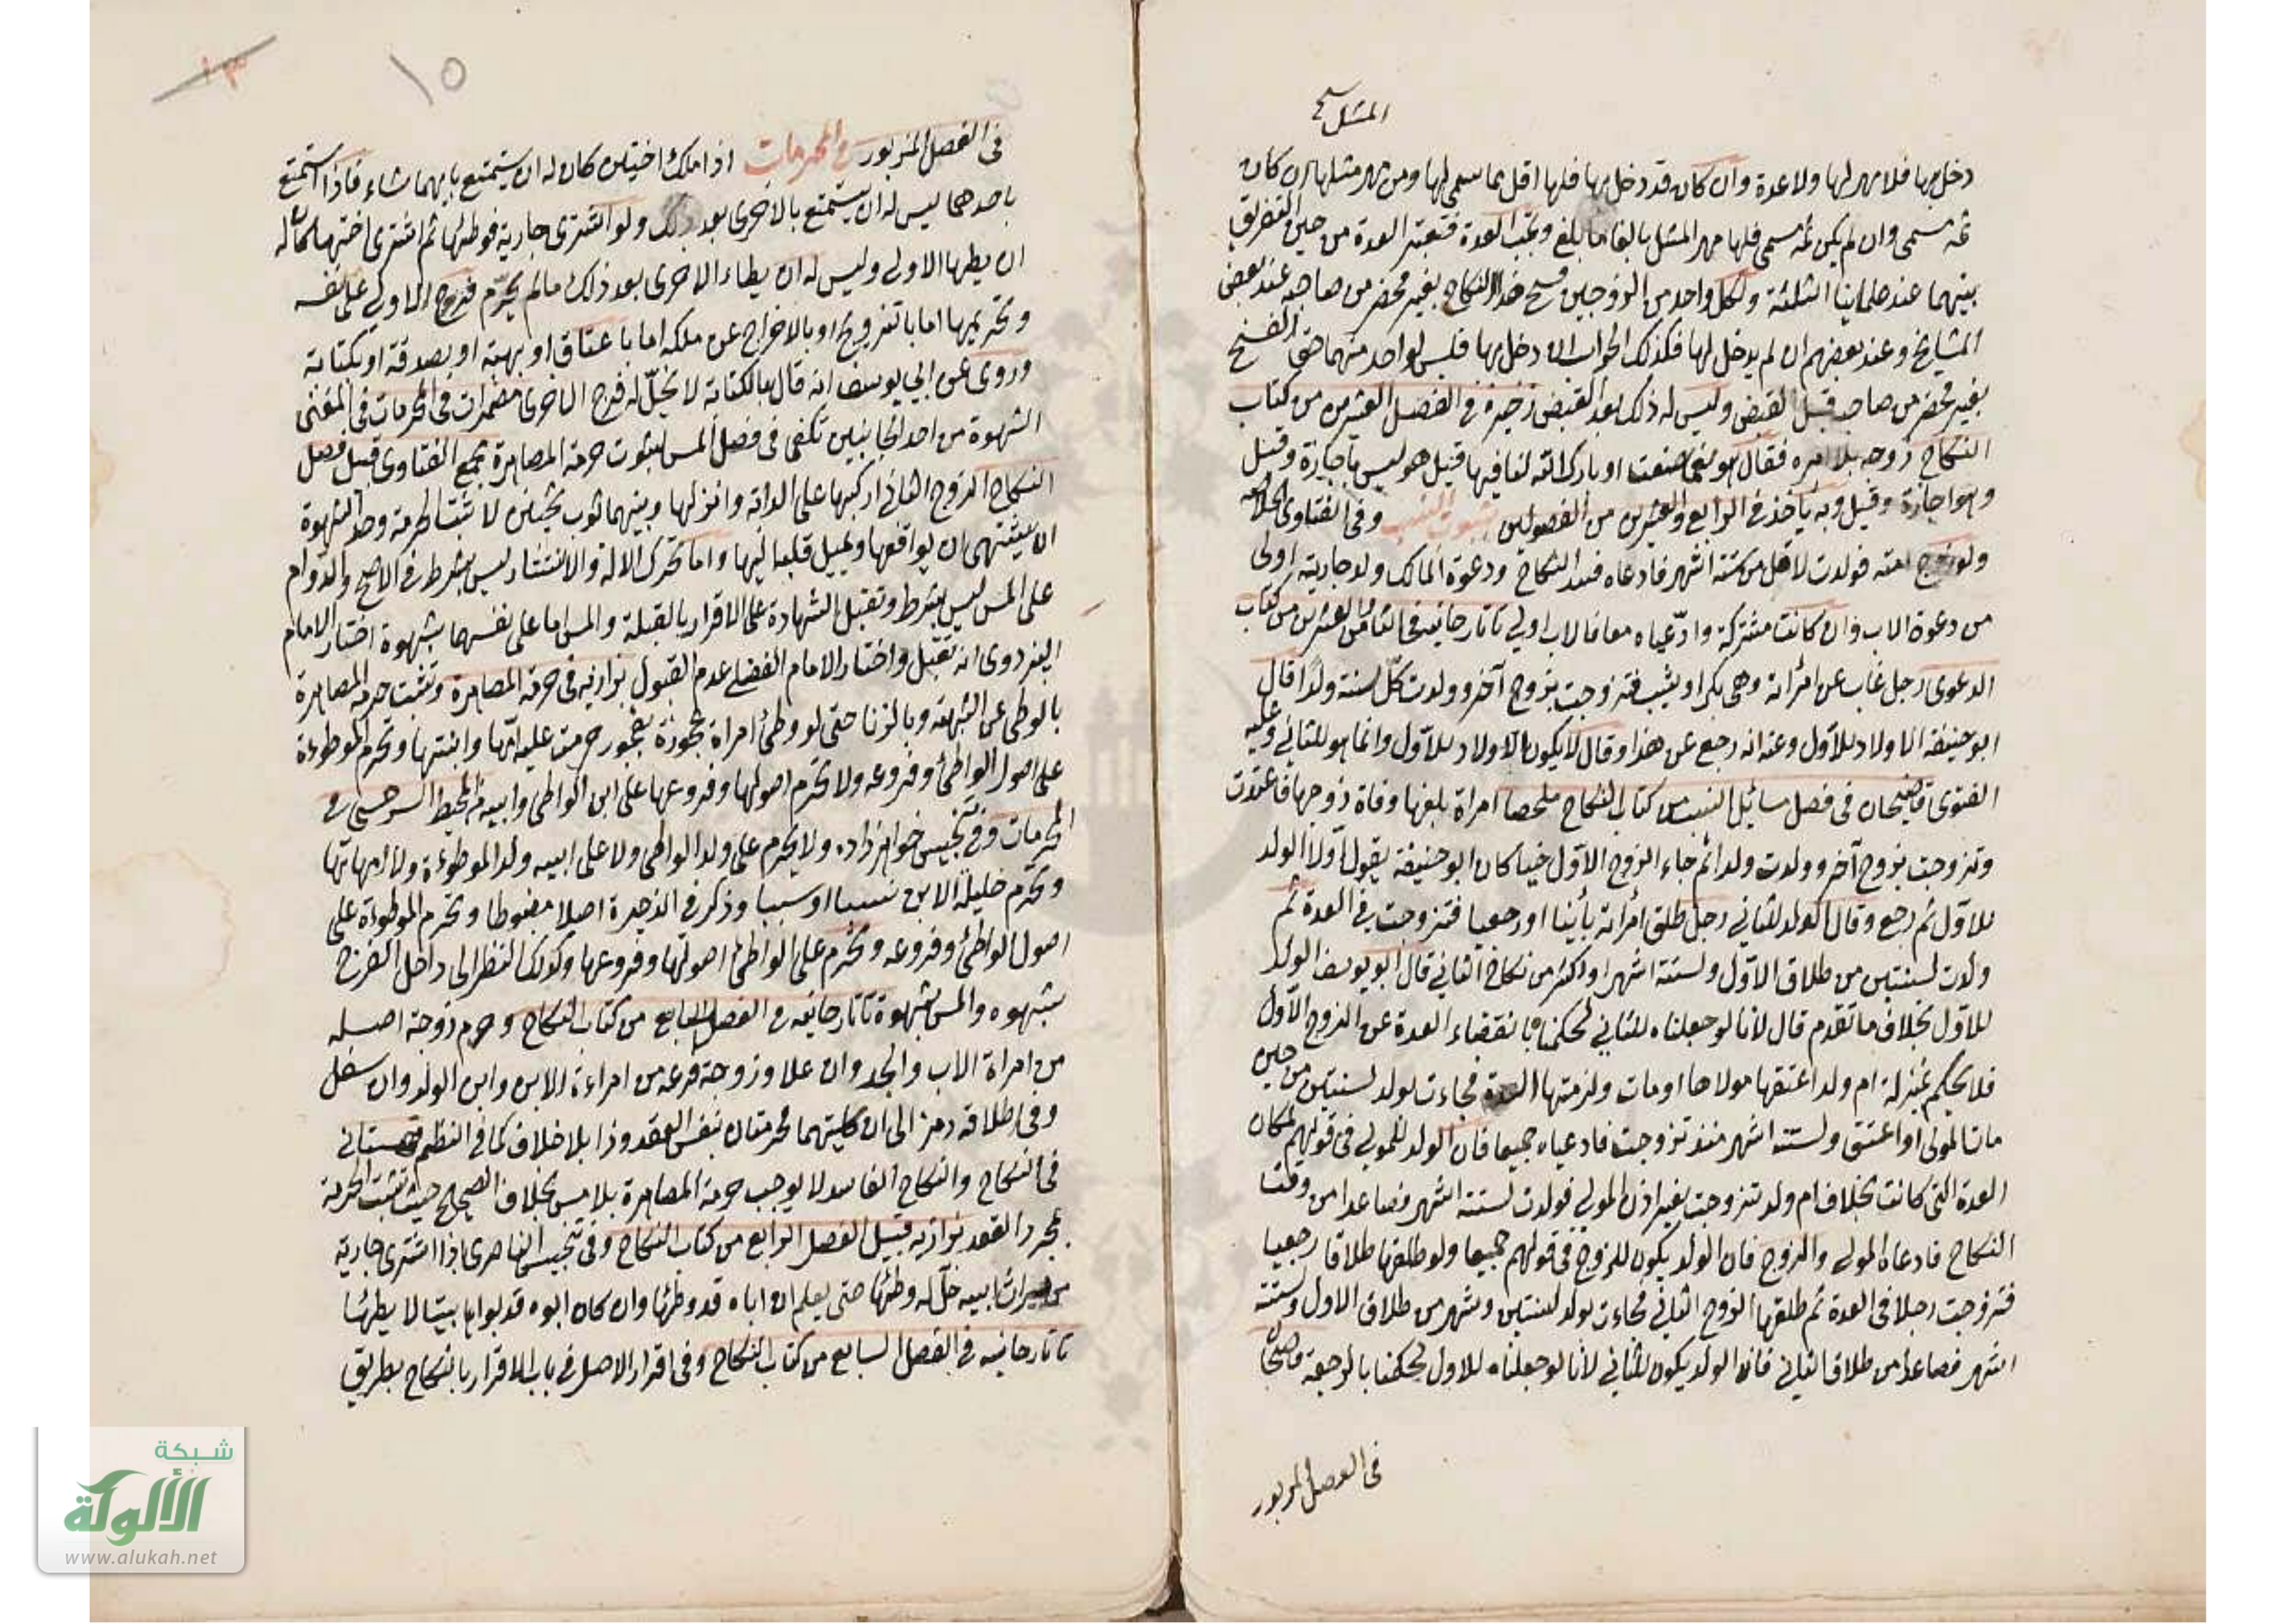 المثل صح
دخل بها فلا مهر لها ولا عدة وان كان قد دخل بها فلها اقل مما سمى لها ومن مهر مثلها ان كان
ثمه مسمى وان لم يكن ثمه مسمى فلها مهر المثل بالغا ما بلغ وتجب العدة فتعتبر العدة من حين التفريق
بينهما عند علمائنا الثلثة ولكل واحد من الزوجين فسخ هذا النكاح بغير محضر من صاحبه عند بعض
المشايخ وعند بعضهم ان لم يدخل لها فكذلك الجواب وان دخل بها فليس لواحد منهما حق الفسخ
بغير محضر من صاحبه قبل القبض وليس له ذلك بعد القبض ذخيرة في الفصل العشرين من كتاب
النكاح زوجه بلا امره فقال نعم صنعت او بارك الله لنا فيها قيل هو ليس باجازة وقيل
وهو اجازة وقيل وبه يأخذ في الرابع والعشرين من الفصولين ثبوت النسب وفي الفتاوى الخلاصه
ولو زوج امته فولدت لاقل من ستة اشهر فادعاه فسد النكاح ودعوة المالك ولد جاريته اولى
من دعوة الاب وان كانت مشتركة وادعياه معا فالاب اولى تاتارخانيه في الثامن والعشرين من كتاب
الدعوى رجل غاب عن امرأته وهي بكر او ثيب فتزوجت بزوج آخر وولدت كل سنة ولدا قال
ابو حنيفة الاولاد للاول وعنه انه رجع عن هذا وقال لا يكون الاولاد للاول وانما هو للثاني وعليه
الفتوى قاضيخان في فصل مسائل النسب من كتاب النكاح ملخصا امراة بلغها وفاة زوجها فاعتدت
وتزوجت بزوج آخر وولدت ولدا ثم جاء الزوج الاول حيا كان ابو حنيفة يقول اولا الولد
للاول ثم رجع وقال الولد للثاني رجل طلق امرأته بائنا او رجعيا فتزوجت في العدة ثم
ولدت لسنتين من طلاق الاول ولستة اشهر او اكثر من نكاح الثاني قال ابو يوسف الولد
للاول بخلاف ما تقدم قال لانا لو جعلناه للثاني لحكمنا بانقضاء العدة عن الزوج الاول
فلا يحكم بمنزلة ام ولد اعتقها مولاها او مات ولزمتها العدة فجاءت بولد لسنتين من حين
مات المولى او اعتق ولستة اشهر منذ تزوجت فادعياه جميعا فان الولد للمولى في قولهم لمكان
العدة التي كانت بخلاف ام ولد تزوجت بغير اذن المولى فولدت لستة اشهر فصاعدا من وقت
النكاح فادعاه المولى والزوج فان الولد يكون للزوج في قولهم جميعا ولو طلقها طلاقا رجعيا
فتزوجت رجلا في العدة ثم طلقها الزوج الثاني فجاءت بولد لسنتين وشهر من طلاق الاول وستة
اشهر فصاعدا من طلاق الثاني فان الولد يكون للثاني لانا لو جعلناه للاول لحكمنا بالرجعة قاضيخان
في الفصل المزبور
١٥
١٣
في الفصل المزبور في المحرمات اذا ملك اختين كان له ان يستمتع بايهما شاء فاذا استمتع
باحدهما ليس له ان يستمتع بالاخرى بعد ذلك ولو اشترى جارية فوطئها ثم اشترى اختها كان له
ان يطأ الاولى وليس له ان يطاء الاخرى بعد ذلك ما لم يحرم فرج الاولى على نفسه
وتحريمها اما بالتزويج او بالاخراج عن ملكه اما باعتاق او بهبة او بصدقة او بكتابة
وروى عن ابي يوسف انه قال بالكتابة لا تحل له فرج الاخرى مضمرات في المحرمات في المغني
الشهوة من احد الجانبين تكفي في فصل المس لثبوت حرمة المصاهرة مجمع الفتاوى قبيل فصل
النكاح الزوج الثاني اركبها على الدابة وانزلها وبينهما ثوب ثخين لا تثبت الحرمة وحد الشهوة
ان يشتهي ان يواقعها ويميل قلبه اليها واما تحرك الآلة والانتشار ليس بشرط في الاصح والدوام
على المس ليس بشرط وتقبل الشهادة على الاقرار بالقبلة والمس اما على نفسها بشهوة اختار الامام
البزدوى انه تقبل واختار الامام الفضلى عدم القبول بزازيه في حرمة المصاهرة وتثبت حرمة المصاهرة
بالوطى عن الشبهة وبالزنا حتى لو وطئ امراة بفجور حرمت عليه امها وابنتها وتحرم الموطوءة
على اصول الواطئ وفروعه ولا تحرم اصولها وفروعها على ابن الواطى وابيه محيط السرخسي في
المحرمات وفي تجنيس خواهر زاده ولا يحرم على ولد الواطى ولا على ابيه ولد الموطوءة ولا امهاتها
وتحرم حليلة الابن نسبا او سببا وذكر في الذخيرة اصلا مضبوطا وتحرم الموطوءة على
اصول الواطئ وفروعه وتحرم على الواطئ اصولها وفروعها وكذلك النظر الى داخل الفرج
بشهوه والمس بشهوة تاتارخانيه في الفصل السابع من كتاب النكاح وحرم زوجة اصله
من امراة الاب والجد وان علا وزوجة فرعه من امراءة الابن وابن الولد وان سفل
وفي اطلاقه رمز الى ان كلتيهما محرمتان بنفس العقد وذا بلا خلاف كما في النظم قهستاني
في النكاح والنكاح الفاسد لا يوجب حرمة المصاهرة بلا مس بخلاف الصحيح حيث تثبت الحرمة
بمجرد العقد بزازيه قبيل الفصل الرابع من كتاب النكاح وفي تجنيس الناصرى اذا اشترى جارية
من ميراث ابيه حل له وطئها حتى يعلم ان اباه قد وطئها وان كان ابوه قد بوأها بيتا لا يطئها
تاتارخانيه في الفصل السابع من كتاب النكاح وفي اقرار الاصل في باب الاقرار بالنكاح بطريق
شبكة
الألوكة
www.alukah.net